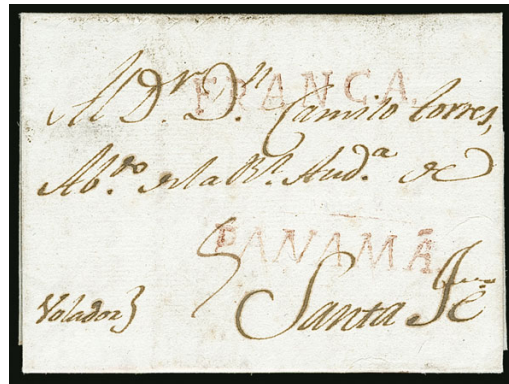 FRANCA.
Al D.r D.n Camilo Torres,
Ab.do de la R.l Aud.a de
PANAMÁ
Santa Fé